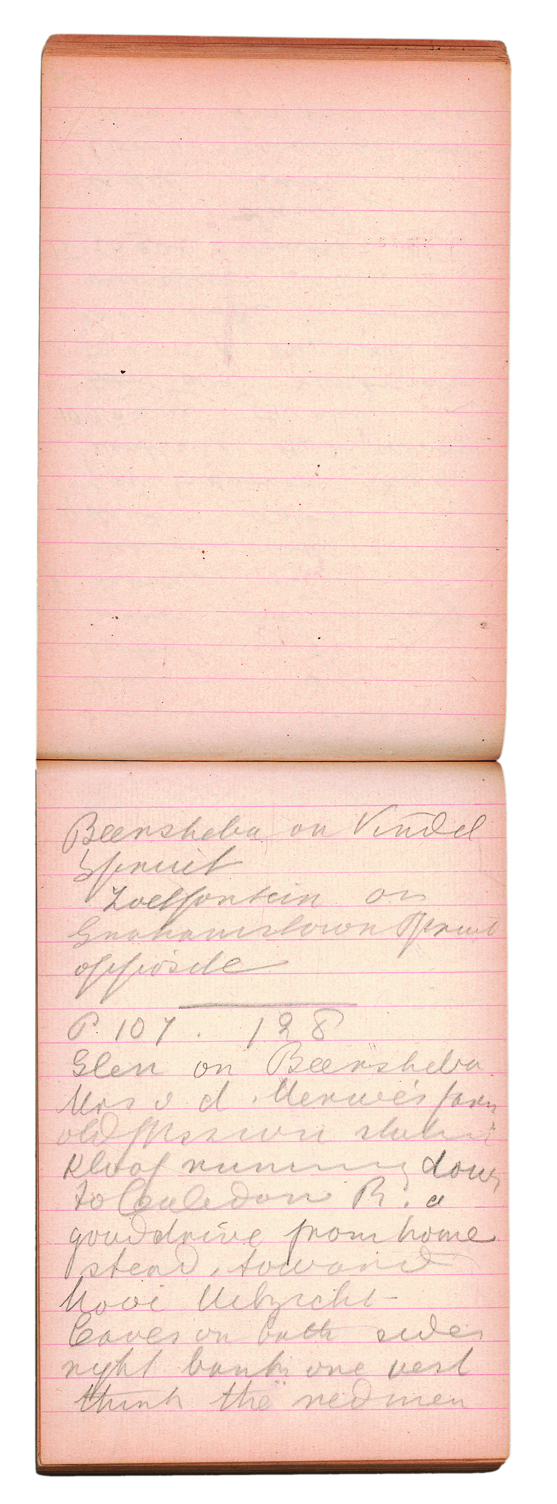 Beersheba on Vindel
Spruit
Zoetfontein on
Grahamstown Spruit
opposite
P. 107. 128
Glen on Beersheba
Mrs v d. Merwe's farm
old Mission
Kloof running down
to Caledon R. a
good drive from home
stead, toward
Mooi Uitzicht
Caves on both sides
right bank one
think the redmen